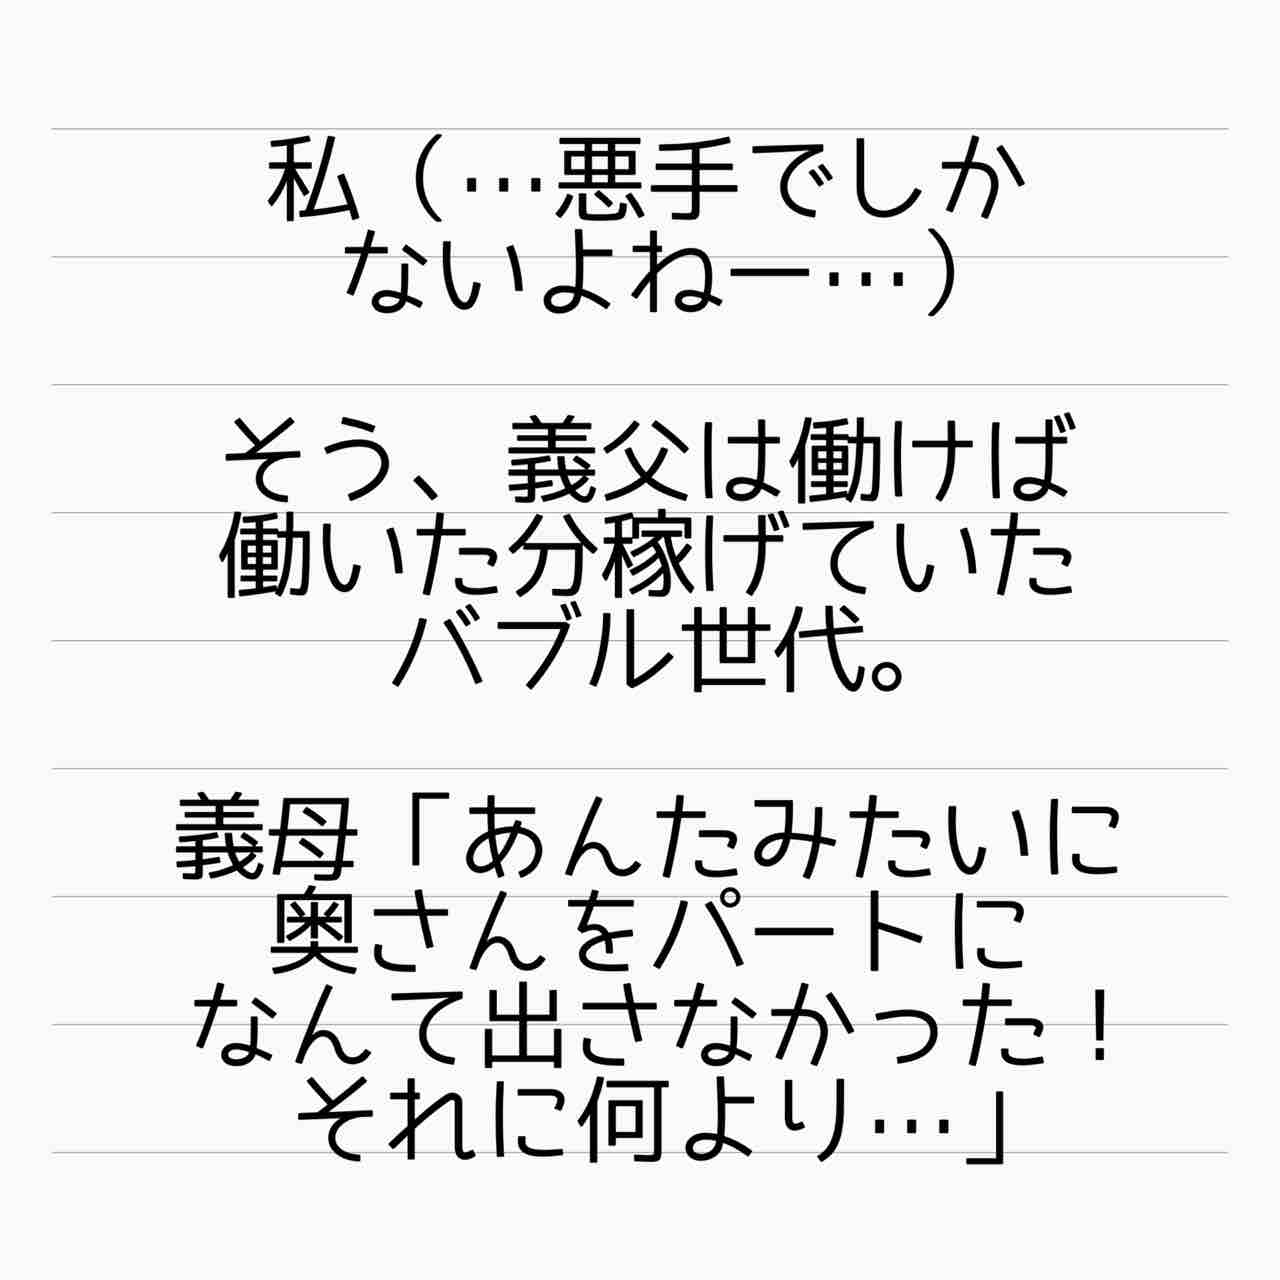 私（…悪手でしか
ないよねー…）
そう、義父は働けば
働いた分稼げていた
バブル世代。
義母「あんたみたいに
奥さんをパートに
なんて出さなかった！
それに何より…」